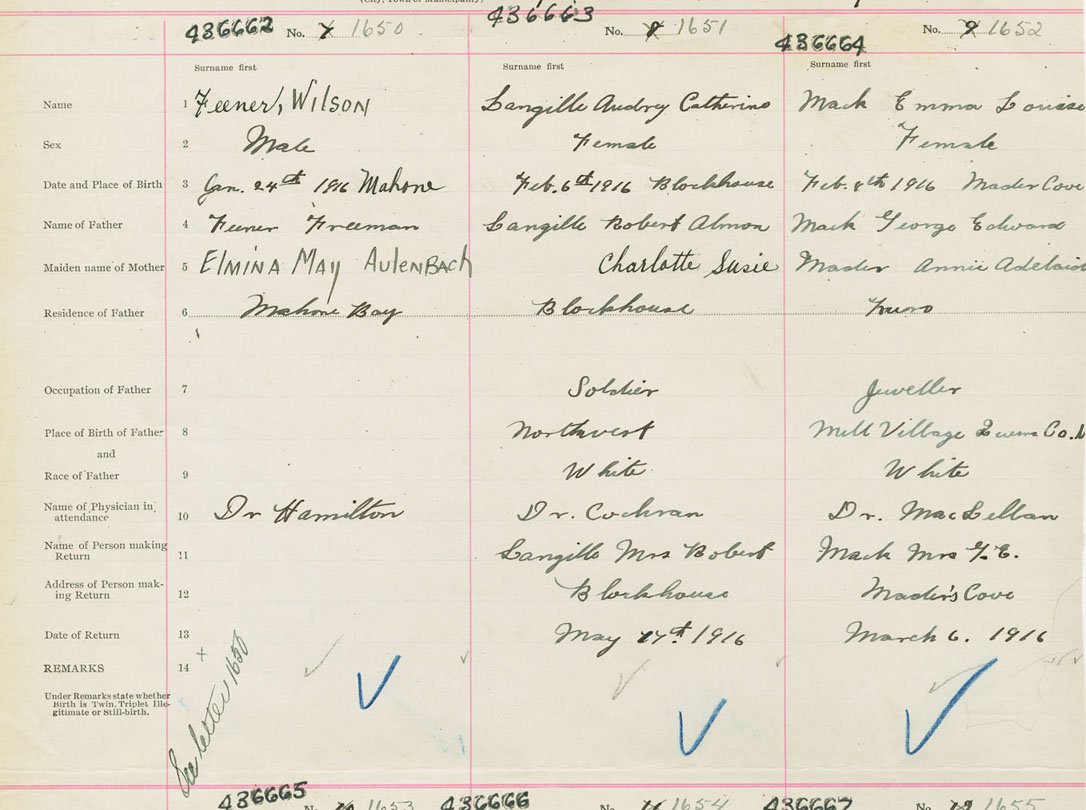 (City, Town or Municipality)
436662 No. 1650 436663 No. 1651 436664 No. 1652
Surname first Surname first Surname first
Name 1 Feener, Wilson Langille Audry Catherine Mack Emma Louise
Sex 2 Male Female Female
Date and Place of Birth 3 Jan. 24th 1916 Mahone Feb. 6th 1916 Blockhouse Feb. 8th 1916 Mader Cove
Name of Father 4 Feener Freeman Langille Robert Almon Mack George Edward
Maiden name of Mother 5 Elmina May Aulenbach Charlotte Susie Mader Annie Adelaid
Residence of Father 6 Mahone Bay Blockhouse Truro
Occupation of Father 7 Soldier Jeweller
Place of Birth of Father 8 Northwest Mill Village Queens Co. N
and
Race of Father 9 White White
Name of Physician in attendance 10 Dr Hamilton Dr. Cochran Dr. MacLellan
Name of Person making Return 11 Langille Mrs Robert Mack Mrs G. E.
Address of Person making Return 12 Blockhouse Mader's Cove
Date of Return 13 May 17th 1916 March 6. 1916
REMARKS 14 x
Under Remarks state whether
Birth is Twin, Triplet Ille-
gitimate or Still-birth.
See letter 1650
436665 No. 1653 436666 No. 1654 436667 No. 1655